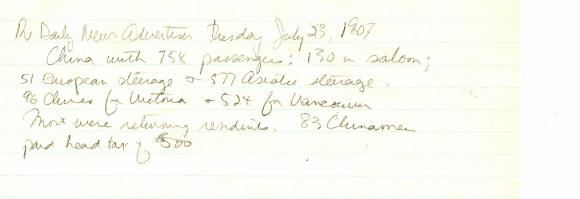 The Daily News Advertiser Tuesday July 23, 1907
China with 758 passengers: 130 in saloon;
51 European steerage & 577 Asiatic steerage.
96 Chinese for Victoria & 524 for Vancouver
Most were returning residents. 83 Chinamen
paid head tax of $500